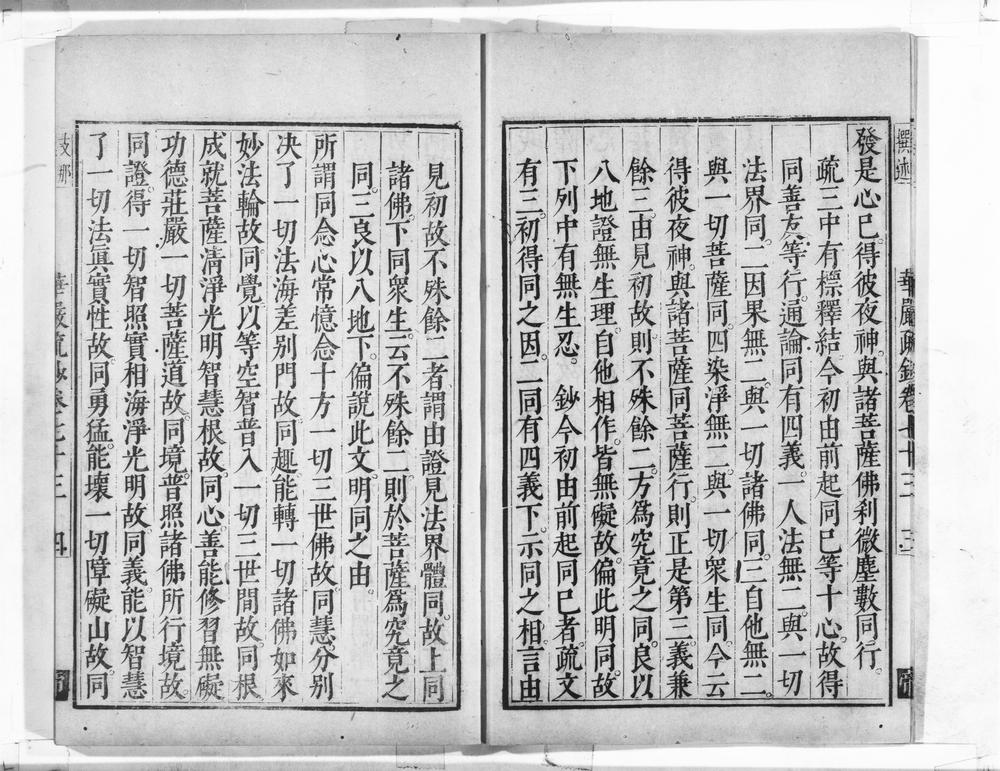 撰述
華嚴疏鈔卷七十三 三
發是心已。得彼夜神。與諸菩薩佛刹微塵數同行。
疏三中有標釋結。今初由前起同已等十心。故得
同善友等行。通論同有四義。一人法無二。與一切
法界同。二因果無二。與一切諸佛同。三自他無二。
與一切菩薩同。四染淨無二。與一切衆生同。今云
得彼夜神。與諸菩薩同菩薩行。則正是第三。義兼
餘三。由見初故則不殊餘二。方爲究竟之同。良以
八地證無生理。自他相作。皆無礙故。偏此明同。故
下列中有無生忍。 鈔今初由前起同已者。疏文
有三。初得同之因。二同有四義下。示同之相。言由
見初故不殊餘二者。謂由證見法界體同。故上同
諸佛。下同衆生。云不殊餘二。則於菩薩爲究竟之
同。三良以八地下。偏說此文。明同之由。
所謂同念。心常憶念十方一切三世佛故。同慧。分別
決了一切法海差別門故。同趣。能轉一切諸佛如來
妙法輪故。同覺。以等空智普入一切三世間故。同根。
成就菩薩清淨光明智慧根故。同心。善能修習無礙
功德。莊嚴一切菩薩道故。同境。普照諸佛所行境故。
同證。得一切智照實相海淨光明故。同義。能以智慧
了一切法眞實性故。同勇猛。能壞一切障礙山故。同
支那
華嚴疏鈔卷七十三 四